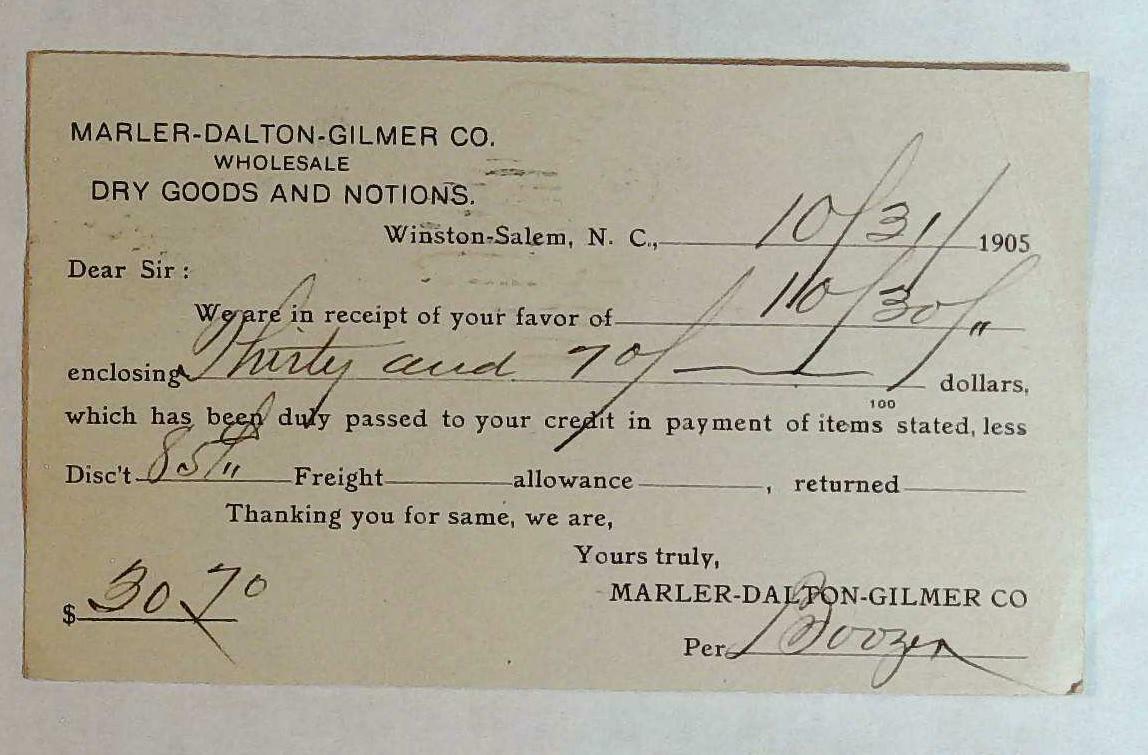 MARLER-DALTON-GILMER CO.
WHOLESALE
DRY GOODS AND NOTIONS.
Winston-Salem, N. C., 10/31/ 1905
Dear Sir :
We are in receipt of your favor of 10/30/ "
enclosing Thirty and 70/100 dollars,
which has been duly passed to your credit in payment of items stated, less
Disc't 85 " Freight allowance , returned
Thanking you for same, we are,
Yours truly,
MARLER-DALTON-GILMER CO
$ 30.70
Per Boozer